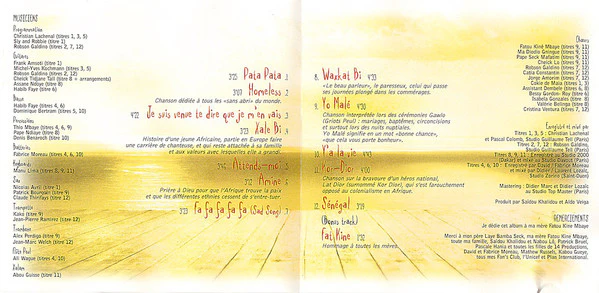 MUSICIENS
Programmation
Christian Lachenal (titres 1, 3, 5)
Sly and Robbie (titre 1)
Robson Galdino (titres 2, 7, 12)
Guitares
Frank Amosti (titre 1)
Michel-Yves Kochmann (titre 3)
Robson Galdino (titres 2, 12)
Cheick Tidjane Tall (titre 8 + arrangements)
Assane Ndiaye (titre 8)
Habib Faye (titre 6)
Basse
Habib Faye (titres 4, 6)
Dominique Bertram (titres 5, 10)
Percussions
Thio Mbaye (titres 4, 6, 9)
Pape Ndiaye (titre 8)
Denis Benarosh (titre 10)
Batteries
Fabrice Moreau (titres 4, 6, 10)
Manu Lima (titres 8, 9, 11)
Sax
Nicolas Avril (titre 1)
Patrick Bourgoin (titre 9)
Claude Thirifays (titre 12)
Trompette
Kako (titre 9)
Jean-Pierre Ramirez (titre 12)
Trombone
Alex Perdigo (titre 9)
Jean-Marc Welch (titre 12)
Ali Wague (titres 4, 10)
Abou Guisse (titre 11)
3'05 Pata Pata 1
Homeless 2
Chanson dédiée à tous les «sans abri» du monde.
4'22 Je suis venue te dire que je m'en vais 3
Xale Bi 4
Histoire d'une jeune Africaine, partie en Europe faire
une carrière de chanteuse, et qui reste attachée à sa famille
et aux valeurs avec lesquelles elle a grandi.
Attends-moi 5
Amine 6
Prière à Dieu pour que l'Afrique trouve la paix
et que les différentes ethnies cessent de s'entre-tuer.
3'23 Fa fa fa fa fa (Sad Song) 7
8. Waxkat Bi 4'20
«Le beau parleur», le paresseux, celui qui passe
ses journées plongé dans les commérages.
9. Yo Malé 4'00
Chanson interprétée lors des cérémonies Gawlo
(Griots Peul) : mariages, baptêmes, circoncisions
et surtout lors des nuits nuptiales.
Yo Malé signifie en un mot «bonne chance»,
«que cela vous porte bonheur».
10. Ya la vie
11. Kor-Dior
Chanson sur la bravoure d'un héros national,
Lat Dior (surnommé Kor Dior), qui s'est farouchement
opposé au colonialisme au Sénégal.
12. Sénégal
(Bonus track)
Fat Kine
Hommage à toutes les mères.
Chœurs
Fatou Kiné Mbaye (titres 9, 11)
Ma Diodio Gningue (titres 9, 11)
Pape Seck Mafatim (titre 9)
Cheick Lo (titre 9)
Robson Galdino (titres 7, 12)
Catia Constantin (titre 7)
Jorge Antonio (titre 2)
Cokie de Maia (titres 1, 3)
Assitant Dembele (titre 6)
Besty Gordon- Roy (titre 6)
Isabella Gonzales (titre 8)
Valérie Belinga (titre 8)
Cristina Ventura (titre 2)
Enregistré et mixé par
Titres 1, 3, 5 : Christian Lachenal
au Pascal Colomb, Studio Guillaume Tell (Paris)
Titres 2, 7, 12 : Robson Galdino,
Studio Guillaume Tell (Paris)
Mastering : Didier Metz et Didier Lozaïc
au Studio Top Master (Paris)
Produit par Saïdou Khalidou et Aldo Veiga
REMERCIEMENTS
Je dédie cet album à ma mère Fatou Kine Mbaye
Merci à mon père Laye Bamba Seck, ma mère Fatou Kine Mbaye,
toute ma famille, Saïdou Khalidou et Nabou Lô, Patrick Bruel,
Pascale Hanta et toutes les filles de 14 Productions,
David et Fabrice Moreau, Mathew Russels, Kabou Guèye,
tous mes Fan's Club, l'Unicef et Plas International.